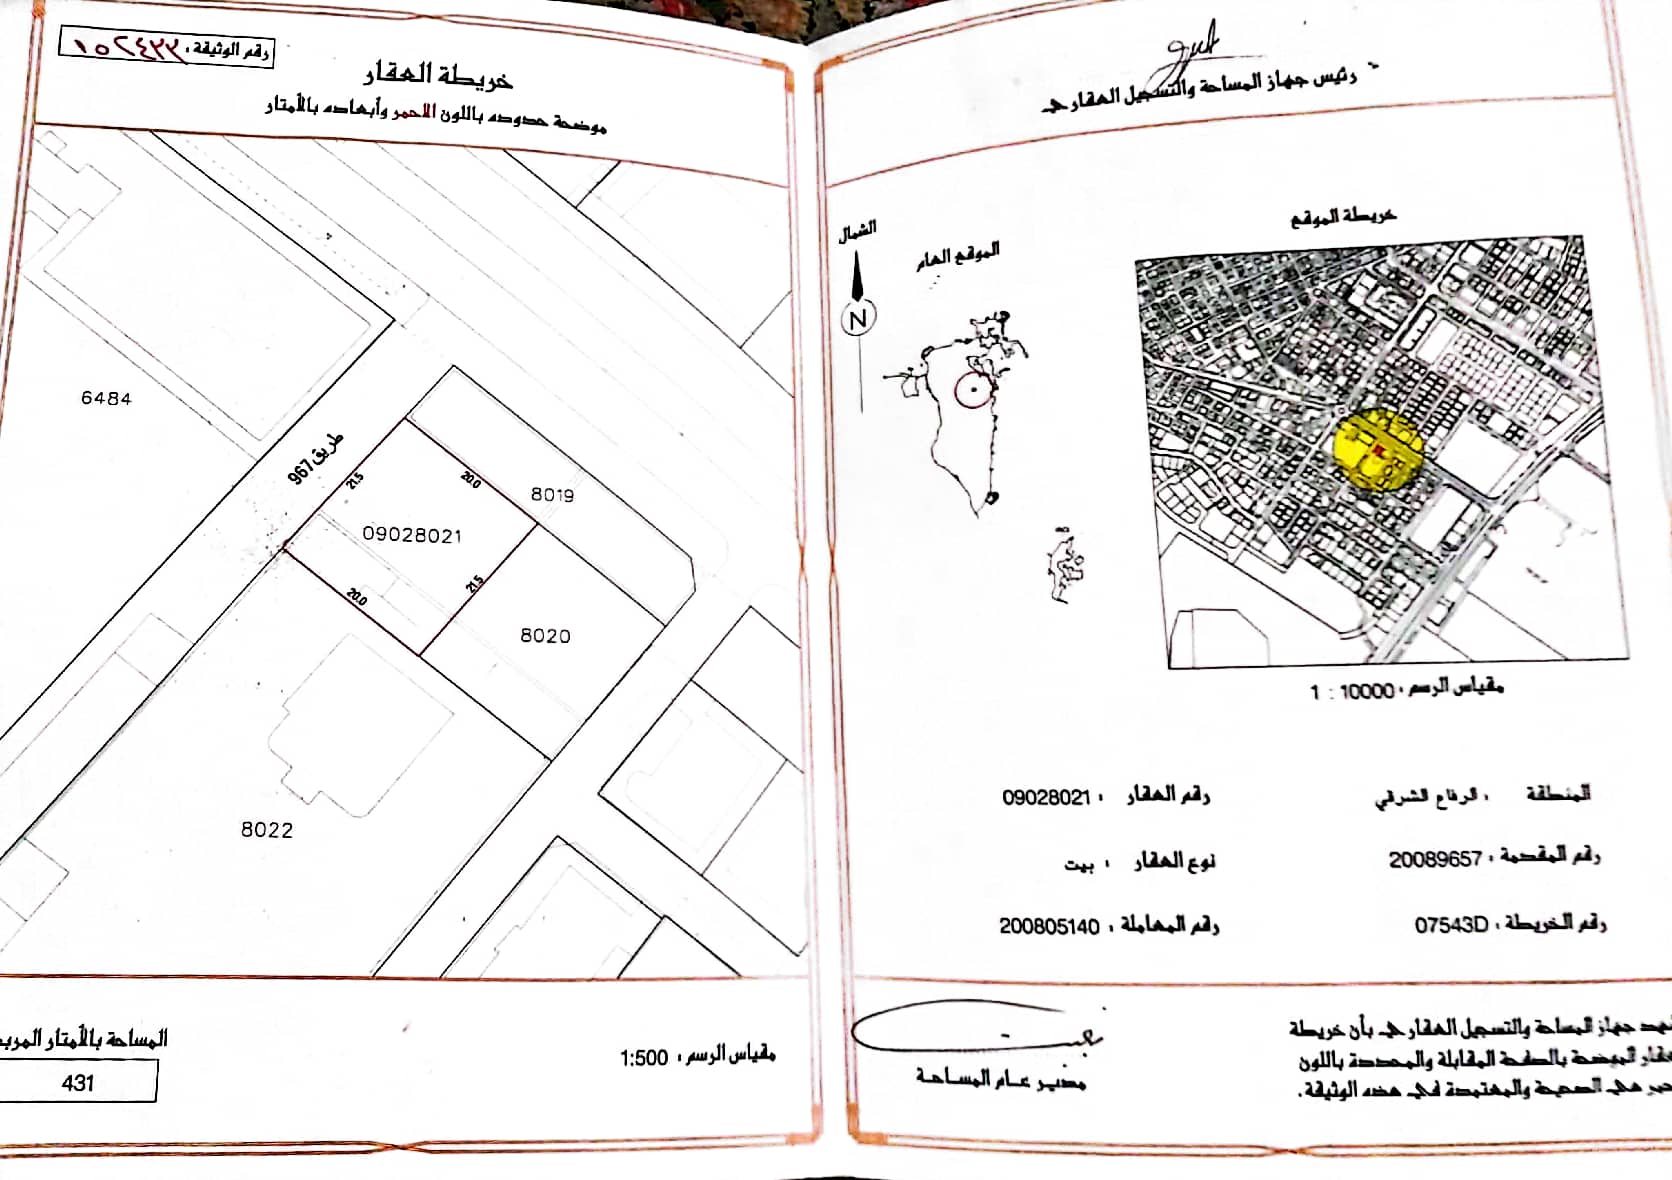 رئيس جهاز المساحة والتسجيل العقاري
خريطة الموقع
الموقع العام
الشمال
N
مقياس الرسم : 10000 : 1
المنطقة : الرفاع الشرقي
رقم العقار : 09028021
رقم المقدمة : 20089657
نوع العقار : بيت
رقم الخريطة : 07543D
رقم المعاملة : 200805140
جهاز المساحة والتسجيل العقاري بأن خريطة
الموضحة بالصفحة المقابلة والمحددة باللون
هي الصحيحة والمعتمدة في هذه الوثيقة.
مدير عام المساحة
رقم الوثيقة : ١٥٢٤٣٣
خريطة العقار
موضحة حدوده باللون الاحمر وأبعاده بالأمتار
6484
طريق 967
21.5
20.0
8019
09028021
20.0
21.5
8020
8022
مقياس الرسم : 1:500
المساحة بالأمتار
431